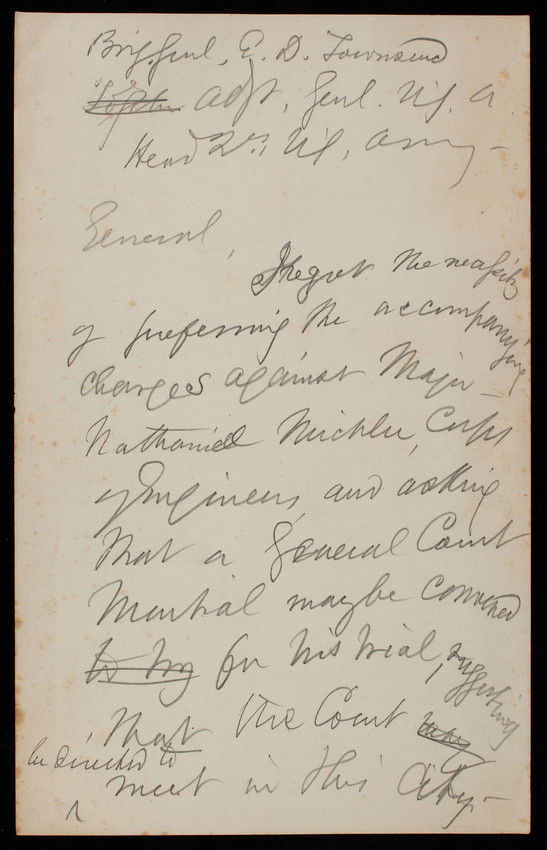 Brig. Genl. E. D. Townsend
Adjt. Genl. U.S. A
Head Qrs U.S. Army -
General,
I regret the necessity
of preferring the accompanying
charges against Major
Nathaniel Michler, Corps
of Engineers, and asking
that a General Court
Martial may be convened
to try for his trial, suggesting
that the Court may
be directed to
meet in this City -